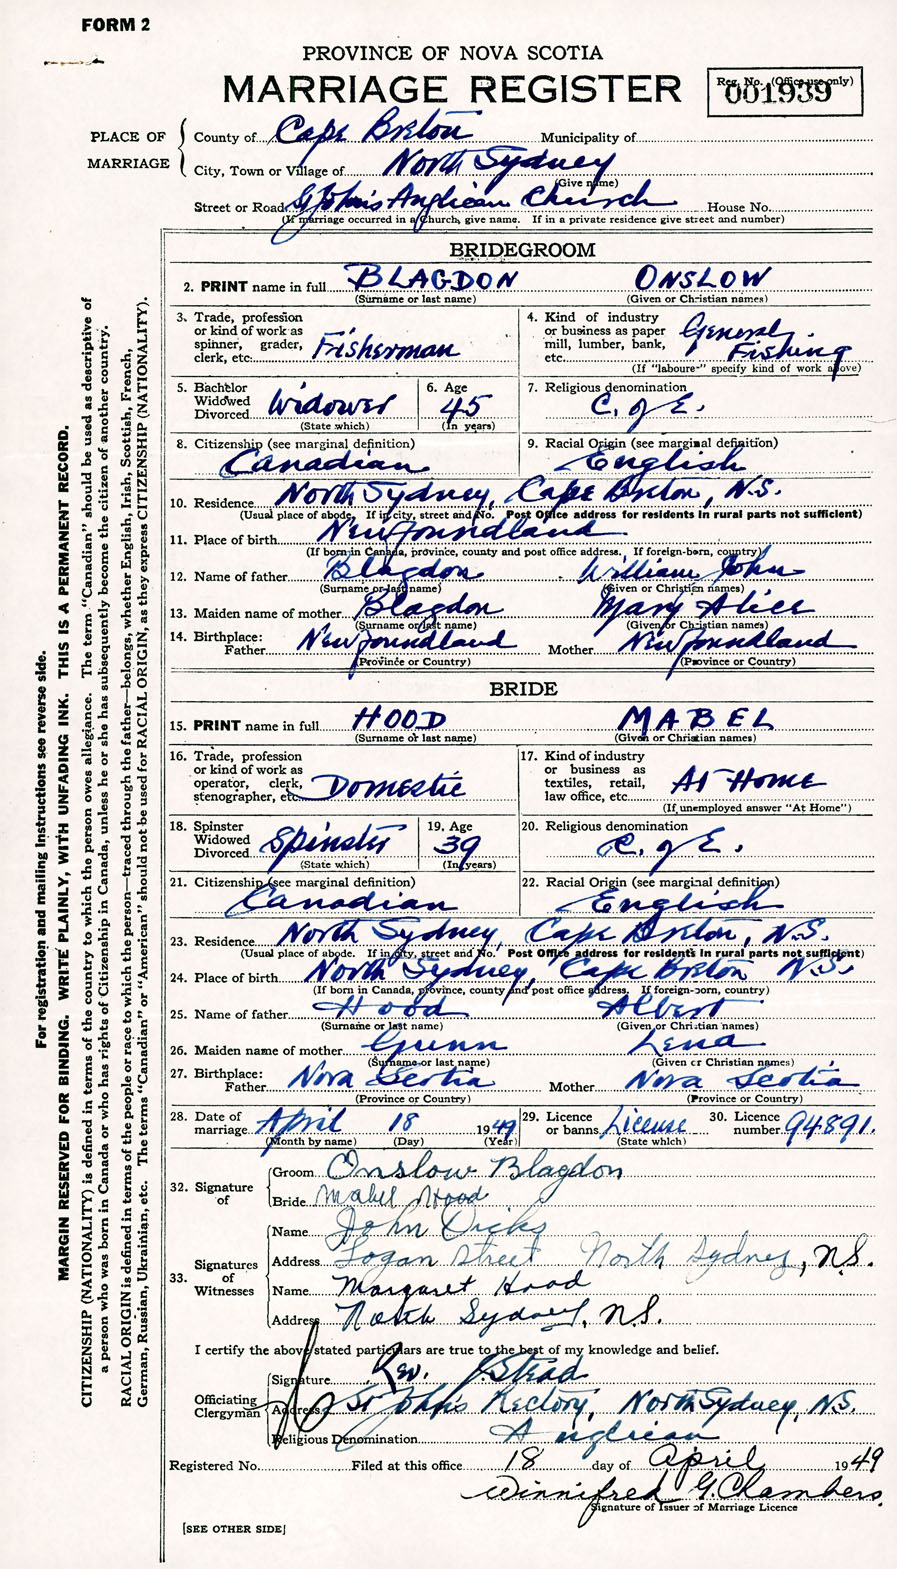 FORM 2
PROVINCE OF NOVA SCOTIA
MARRIAGE REGISTER
Reg. No. (Office use only)
001939
PLACE OF MARRIAGE
County of Cape Breton Municipality of
City, Town or Village of North Sydney
(Give name)
Street or Road St John's Anglican Church House No.
(If marriage occurred in a Church, give name. If in a private residence give street and number)
BRIDEGROOM
2. PRINT name in full BLAGDON ONSLOW
(Surname or last name) (Given or Christian names)
3. Trade, profession or kind of work as spinner, grader, clerk, etc. Fisherman
4. Kind of industry or business as paper mill, lumber, bank, etc. General Fishing
(If "laborer" specify kind of work above)
5. Bachelor Widowed Divorced Widower
(State which)
6. Age 45
(In years)
7. Religious denomination C. of E.
8. Citizenship (see marginal definition) Canadian
9. Racial Origin (see marginal definition) English
10. Residence North Sydney, Cape Breton, N.S.
(Usual place of abode. If in city, street and No. Post Office address for residents in rural parts not sufficient)
11. Place of birth Newfoundland
(If born in Canada, province, county and post office address. If foreign-born, country)
12. Name of father Blagdon William John
(Surname or last name) (Given or Christian names)
13. Maiden name of mother Blagdon Mary Alice
(Surname or last name) (Given or Christian names)
14. Birthplace: Father Newfoundland Mother Newfoundland
(Province or Country) (Province or Country)
BRIDE
15. PRINT name in full HOOD MABEL
(Surname or last name) (Given or Christian names)
16. Trade, profession or kind of work as operator, clerk, stenographer, etc. Domestic
17. Kind of industry or business as textiles, retail, law office, etc. At Home
(If unemployed answer "At Home")
18. Spinster Widowed Divorced Spinster
(State which)
19. Age 39
(In years)
20. Religious denomination C. of E.
21. Citizenship (see marginal definition) Canadian
22. Racial Origin (see marginal definition) English
23. Residence North Sydney, Cape Breton, N.S.
(Usual place of abode. If in city, street and No. Post Office address for residents in rural parts not sufficient)
24. Place of birth North Sydney, Cape Breton N.S.
(If born in Canada, province, county and post office address. If foreign-born, country)
25. Name of father Hood Albert
(Surname or last name) (Given or Christian names)
26. Maiden name of mother Gunn Lena
(Surname or last name) (Given or Christian names)
27. Birthplace: Father Nova Scotia Mother Nova Scotia
(Province or Country) (Province or Country)
28. Date of marriage April 18 1949
(Month by name) (Day) (Year)
29. Licence or banns License
(State which)
30. Licence number 94891.
32. Signature of
Groom Onslow Blagdon
Bride Mabel Hood
33. Signatures of Witnesses
Name John Dicks
Address Logan Street North Sydney, N.S.
Name Margaret Hood
Address North Sydney, N.S.
I certify the above stated particulars are true to the best of my knowledge and belief.
Officiating Clergyman
Signature Rev. J Stead
Address St John's Rectory, North Sydney, N.S.
Religious Denomination Anglican
Registered No. Filed at this office 18 day of April 1949
Winnifred G. Chambers
Signature of Issuer of Marriage Licence
[SEE OTHER SIDE]
For registration and mailing instructions see reverse side.
MARGIN RESERVED FOR BINDING. WRITE PLAINLY, WITH UNFADING INK. THIS IS A PERMANENT RECORD.
CITIZENSHIP (NATIONALITY) is defined in terms of the country to which the person owes allegiance. The term "Canadian" should be used as descriptive of
a person who was born in Canada or who has rights of Citizenship in Canada, unless he or she has subsequently become the citizen of another country.
RACIAL ORIGIN is defined in terms of the people or race to which the person—traced through the father—belongs, whether English, Irish, Scottish, French,
German, Russian, Ukrainian, etc. The terms "Canadian" or "American" should not be used for RACIAL ORIGIN, as they express CITIZENSHIP (NATIONALITY).